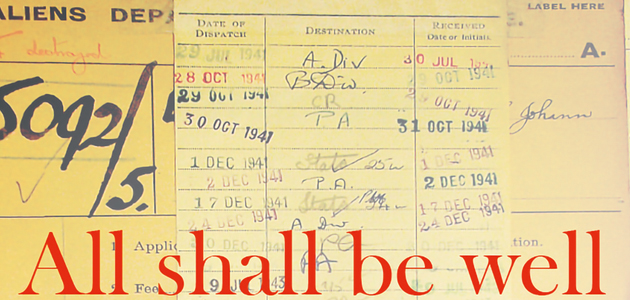 ALIENS DEP
LABEL HERE
DATE OF DISPATCH
DESTINATION
RECEIVED
Date or Initials.
destroyed
A.
29 JUL 1941 A. Div 30 JUL
28 OCT 1941 29 OCT 1941
29 OCT 1941 CR. OCT 1941
30 OCT 1941 P A 31 OCT 1941
5092/5.
Johann
1 DEC 1941 Stats 1 DEC 1941
2 DEC 1941 P.A. 2 DEC 1941
17 DEC 1941 Stats 17 DEC 1941
24 DEC 1941 A Div 24 DEC 1941
Applic DEC 1941 tion.
5 Fee 9 JUL
All shall be well